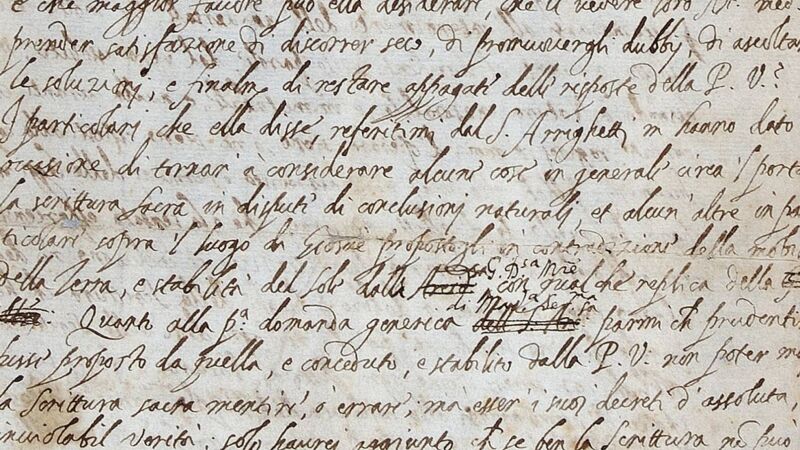 e che maggior favore può ella desiderare, che il vedere loro Al. med
prender satisfazione di discorrer seco, di promuovergli dubbij, di ascolta
le soluzioni, e finalm.e di restare appagati delle risposte della P. V.ª
I particolari che ella disse, referitimi dal S. Arrighetti, m hanno dato
occasione di tornar à considerare alcune cose in generale circa 'l porta
la scrittura sacra in dispute di conclusioni naturali, et alcun'altre in pa
ticolare sopra 'l luogo di Giosuè propostogli in contradizione della mobi
della Terra, e stabilità del Sole dalla G. D.sa M.re con qualche replica della
di Mad.ª Ser.ma
Quanto alla p.ª domanda generica parmi ch prudentis
fusse proposto da quella, e conceduto, e stabilito dalla P. V. non poter ma
la scrittura sacra mentire, ò errare, mà esser i suoi decreti d'assoluta,
inviolabil verità: solo haurei aggiunto, ch se ben la Scrittura nō può